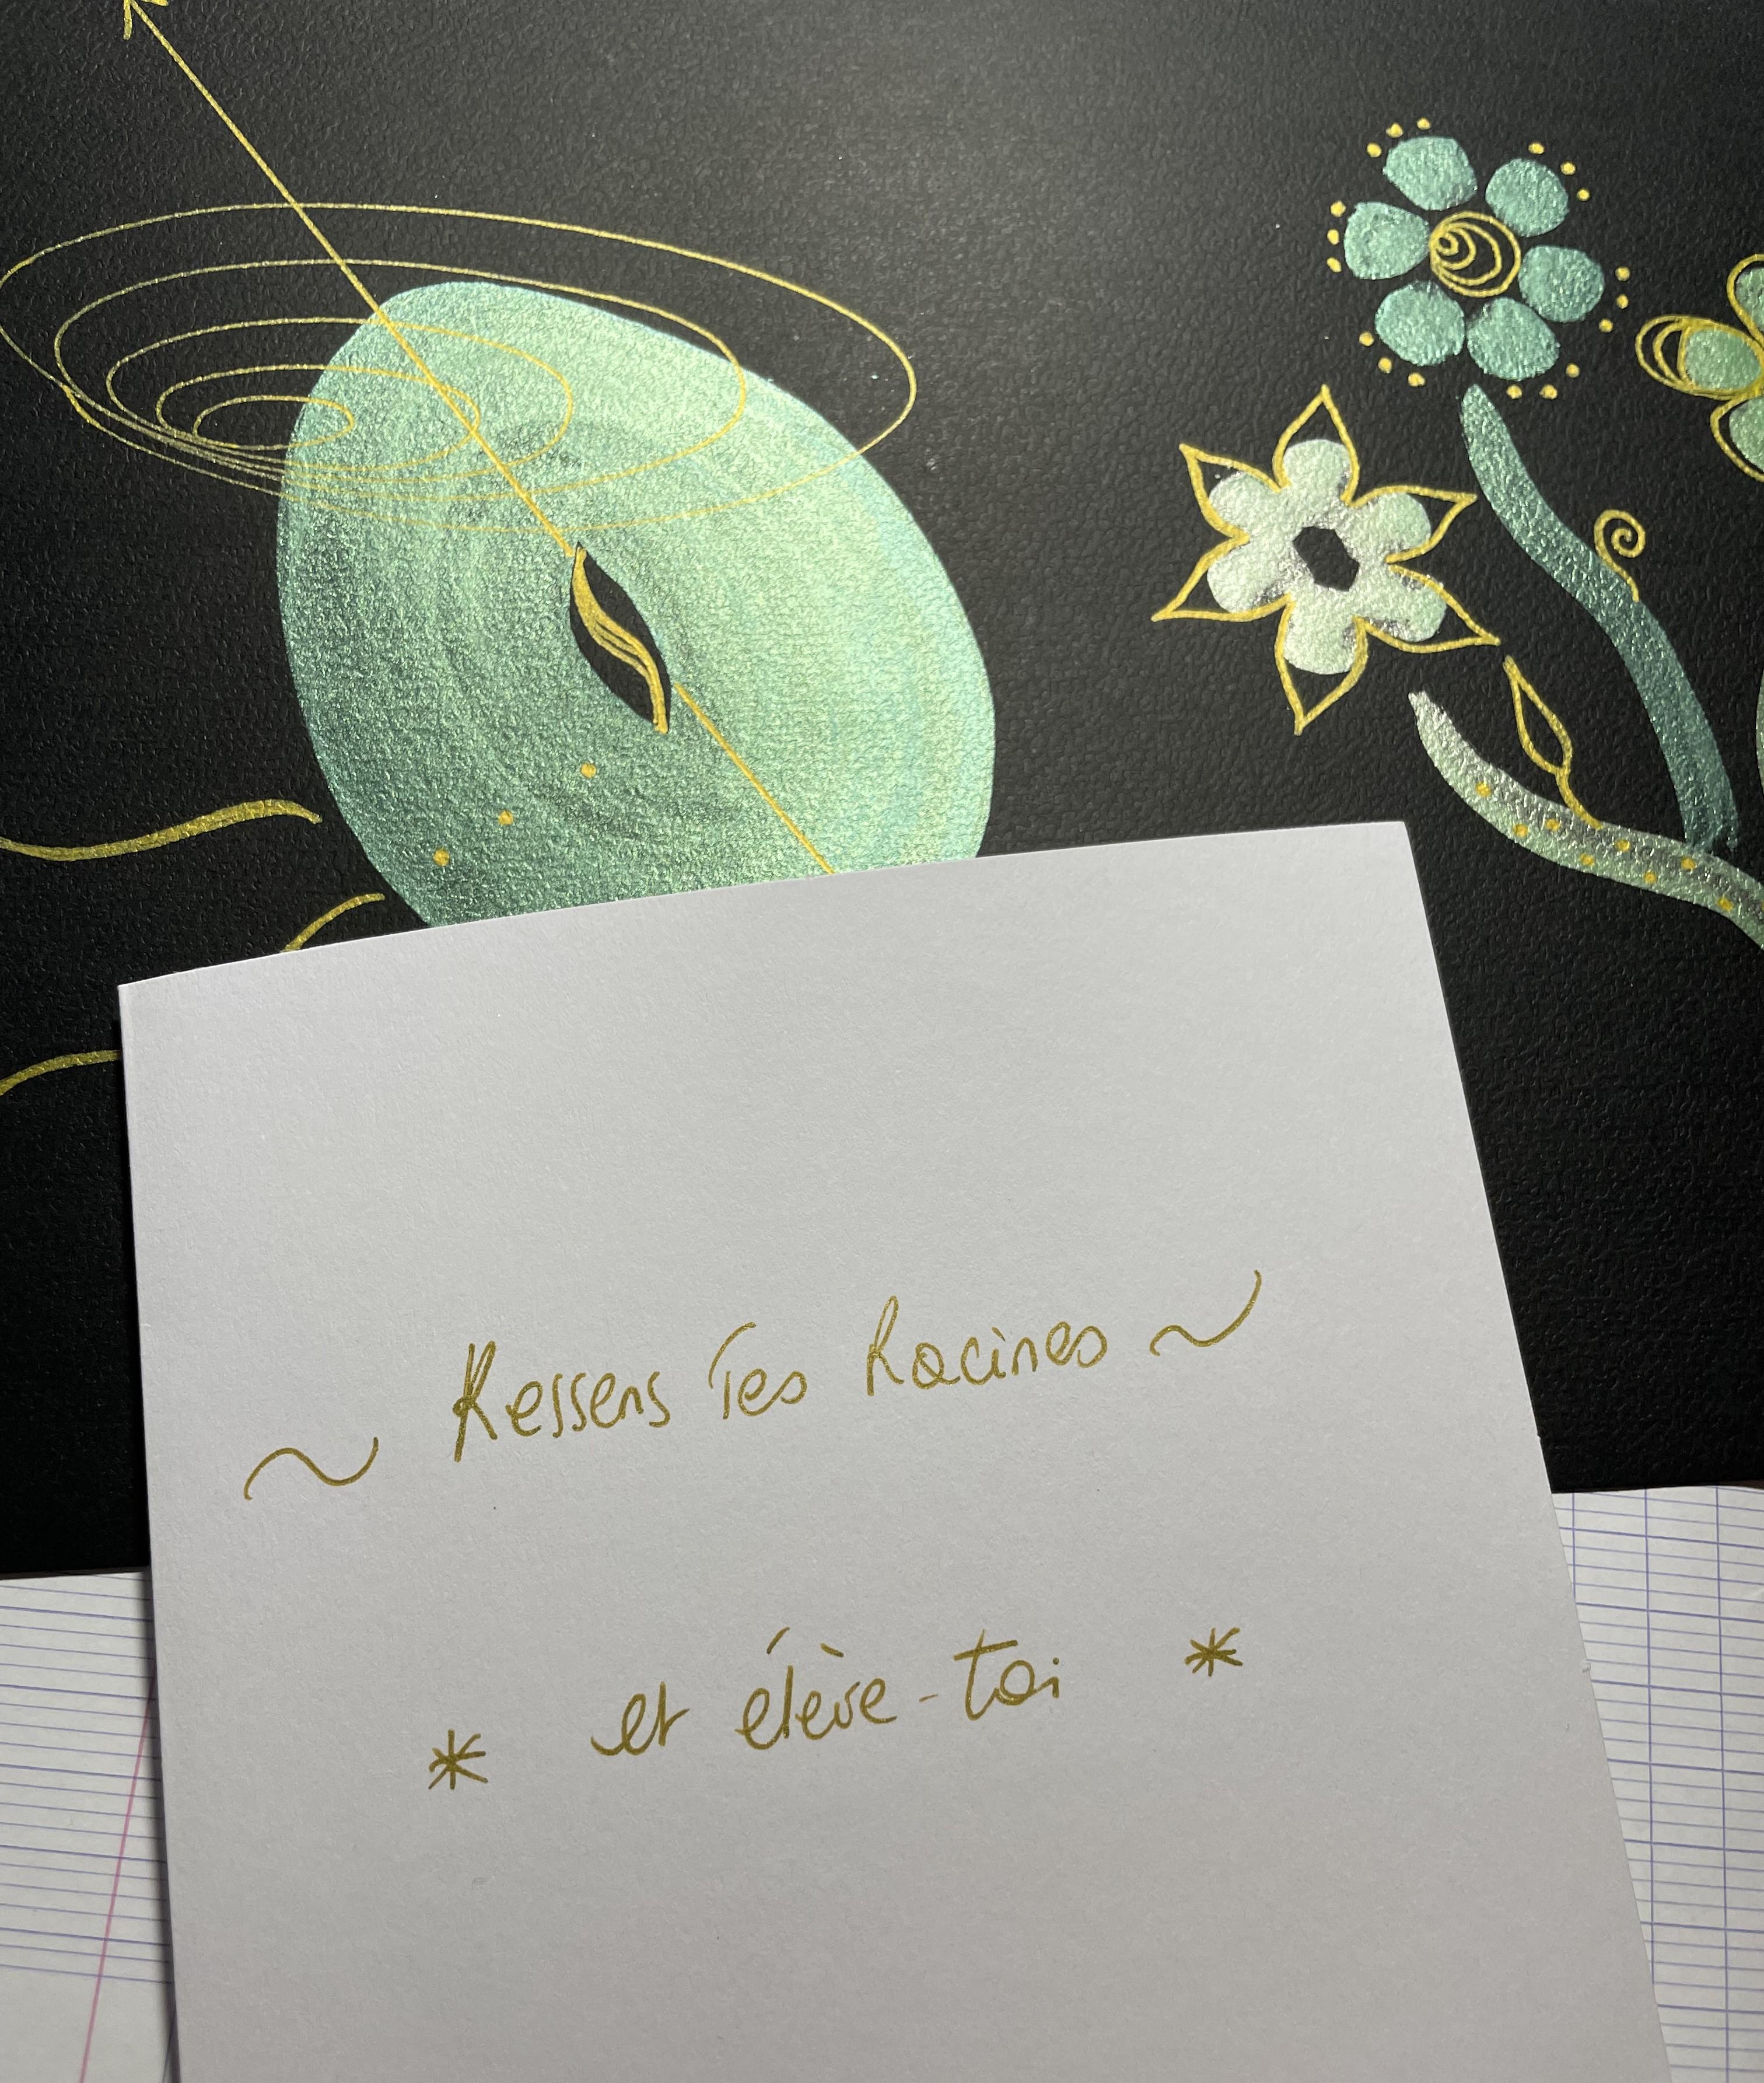 ~ Ressens Tes Racines ~
* et élève-toi *